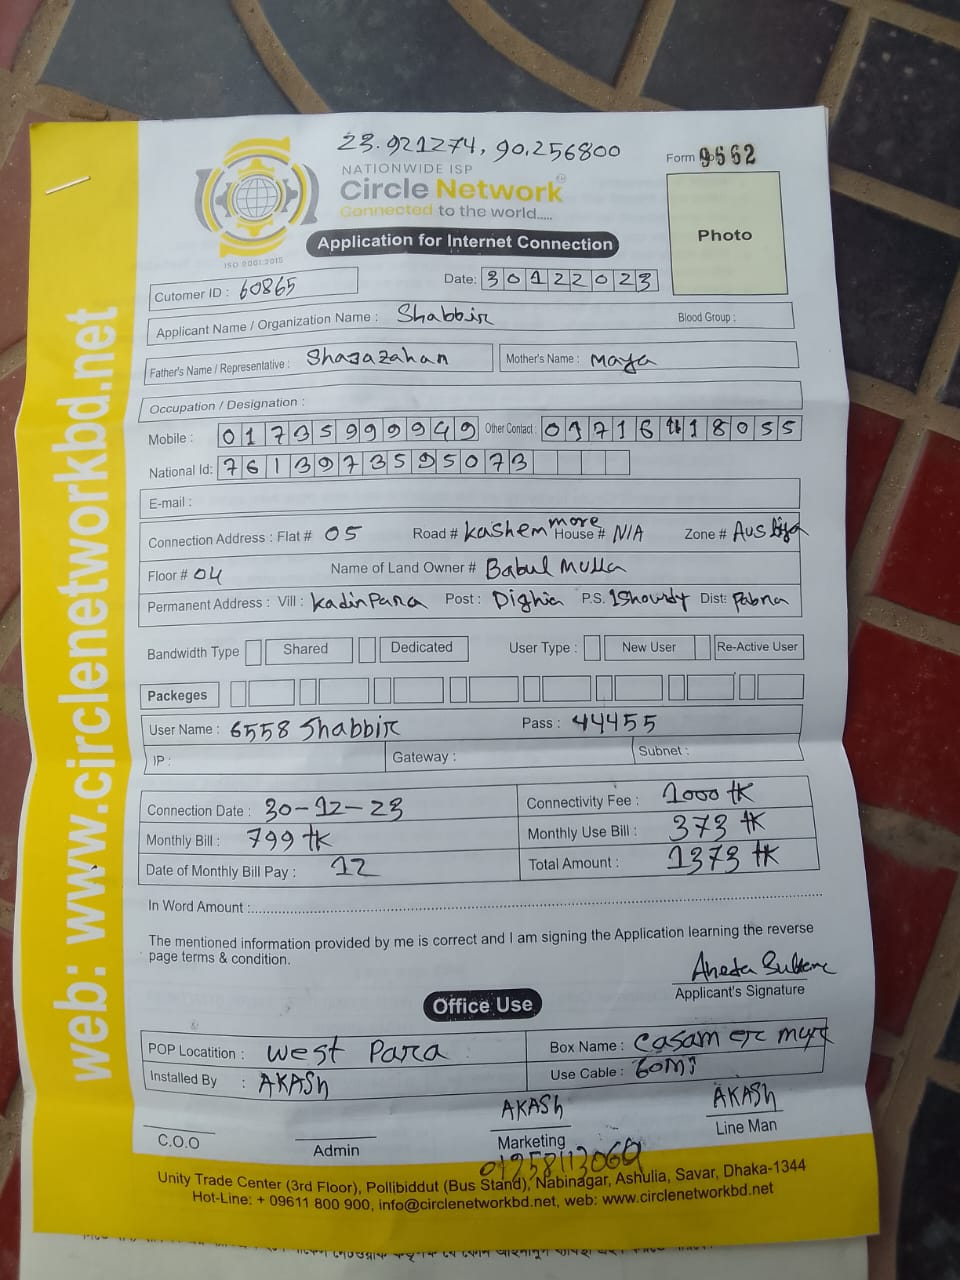 23.921274, 90.256800
Form 9562
NATIONWIDE ISP
Circle Network
Connected to the world.....
ISO 9001:2015
Application for Internet Connection
Photo
Cutomer ID : 60865
Date: 30122023
Applicant Name / Organization Name : Shabbir Blood Group :
Father's Name / Representative : Shajazahan Mother's Name : Maya
Occupation / Designation :
Mobile : 01735999949 Other Contact : 01716118055
National Id: 7613973595073
E-mail :
Connection Address : Flat # 05 Road # Kashem more House # N/A Zone #
Floor # 04 Name of Land Owner # Babul Mulla
Permanent Address : Vill : Kadinpara Post : Dighia P.S. IShourdy Dist: Pabna
Bandwidth Type Shared Dedicated User Type : New User Re-Active User
Packeges
User Name : 6558 Shabbir Pass : 44455
IP : Gateway : Subnet :
Connection Date : 30-12-23 Connectivity Fee : 1000 tk
Monthly Bill : 799 tk Monthly Use Bill : 373 tk
Date of Monthly Bill Pay : 12 Total Amount : 1373 tk
In Word Amount :
The mentioned information provided by me is correct and I am signing the Application learning the reverse
page terms & condition.
Applicant's Signature
Office Use
POP Locatition : West Para Box Name : Casam er
Installed By : AKASh Use Cable :
AKASh AKASh
C.O.O Admin Marketing Line Man
Unity Trade Center (3rd Floor), Pollibiddut (Bus Stand), Nabinagar, Ashulia, Savar, Dhaka-1344
Hot-Line: + 09611 800 900, info@circlenetworkbd.net, web: www.circlenetworkbd.net
web: www.circlenetworkbd.net